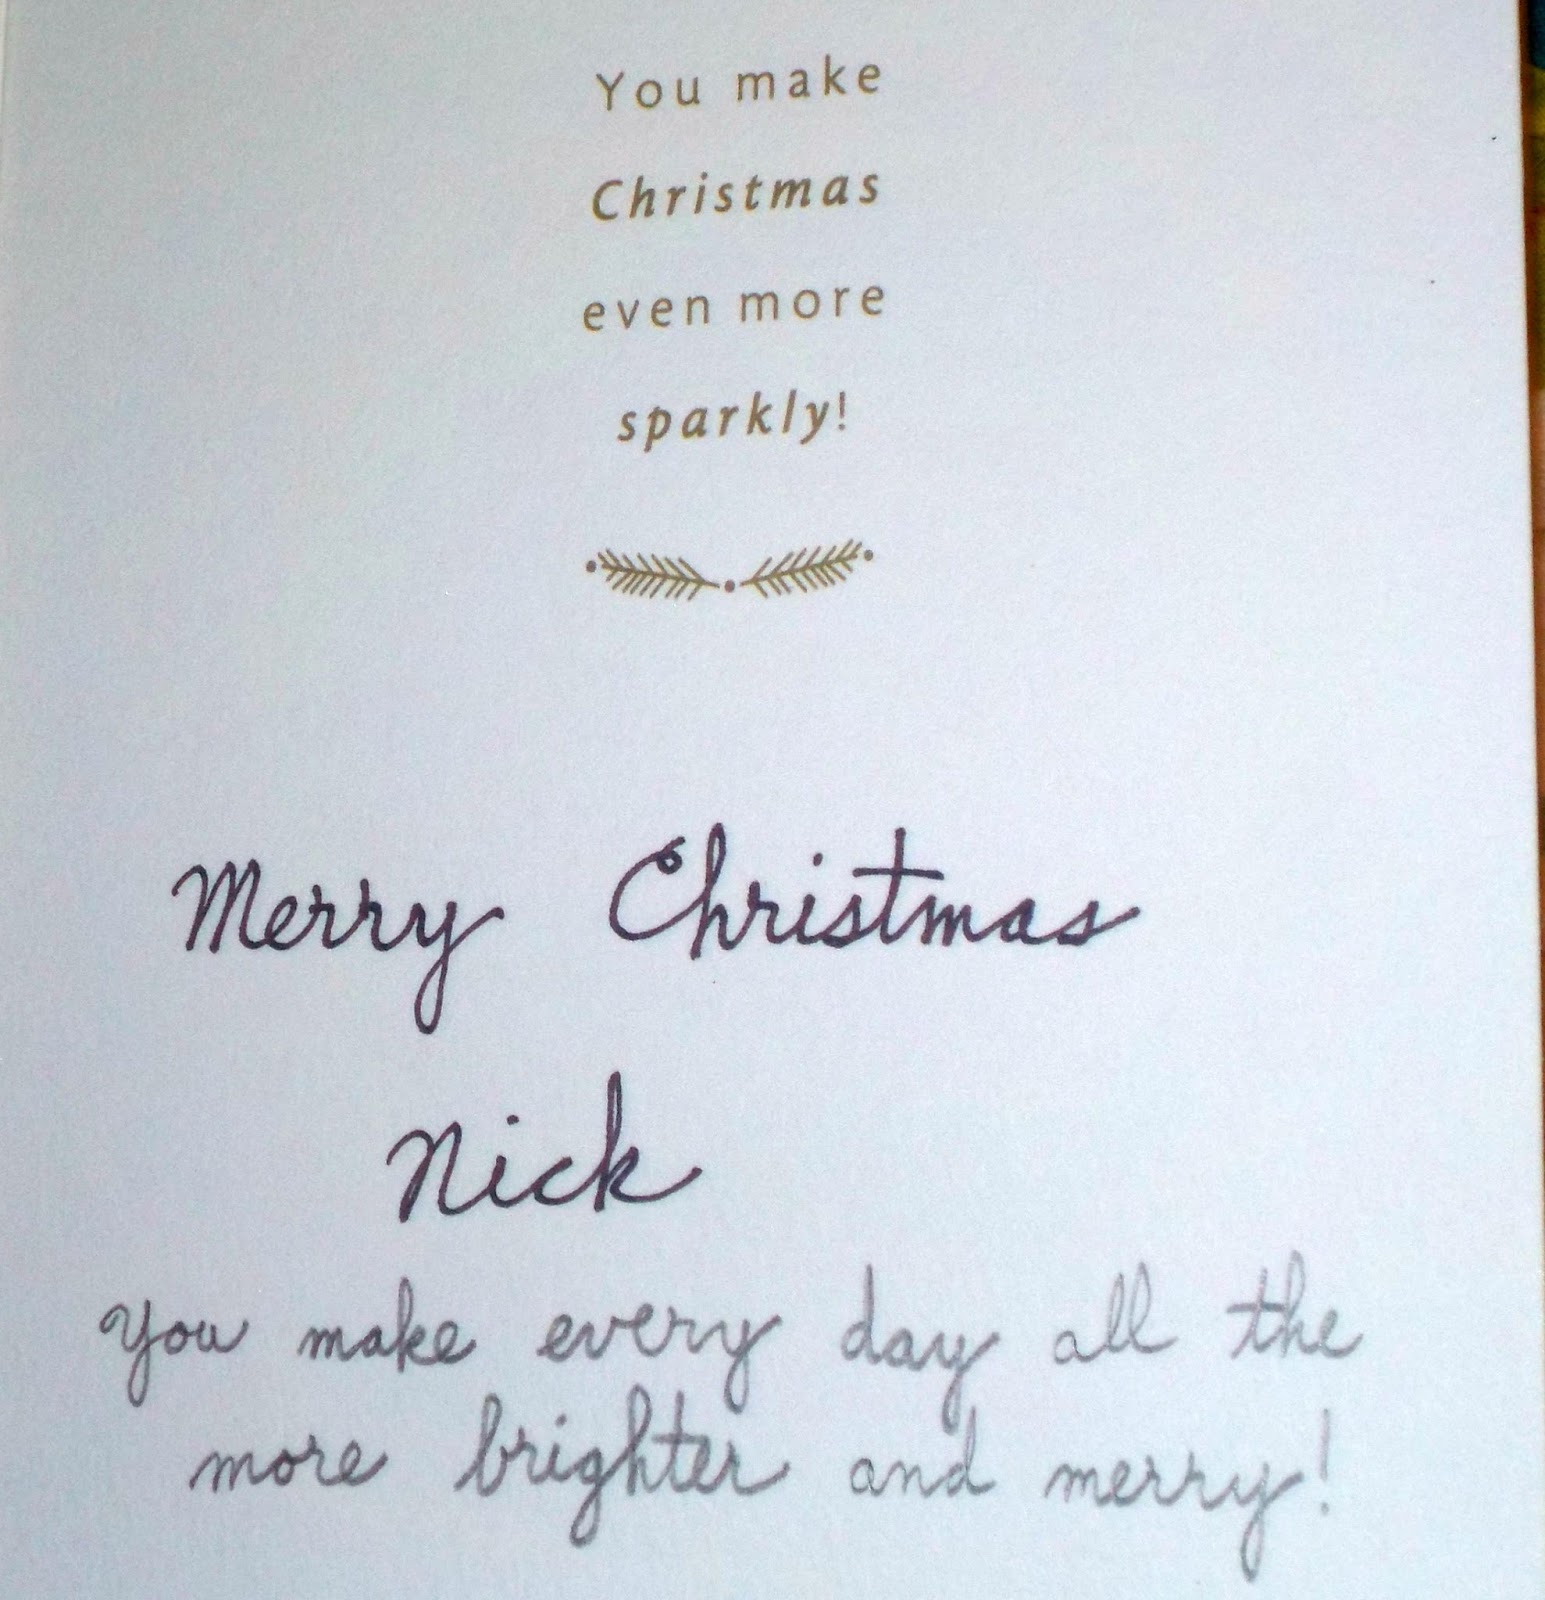 You make
Christmas
even more
sparkly!
Merry Christmas
Nick
You make every day all the
more brighter and merry!